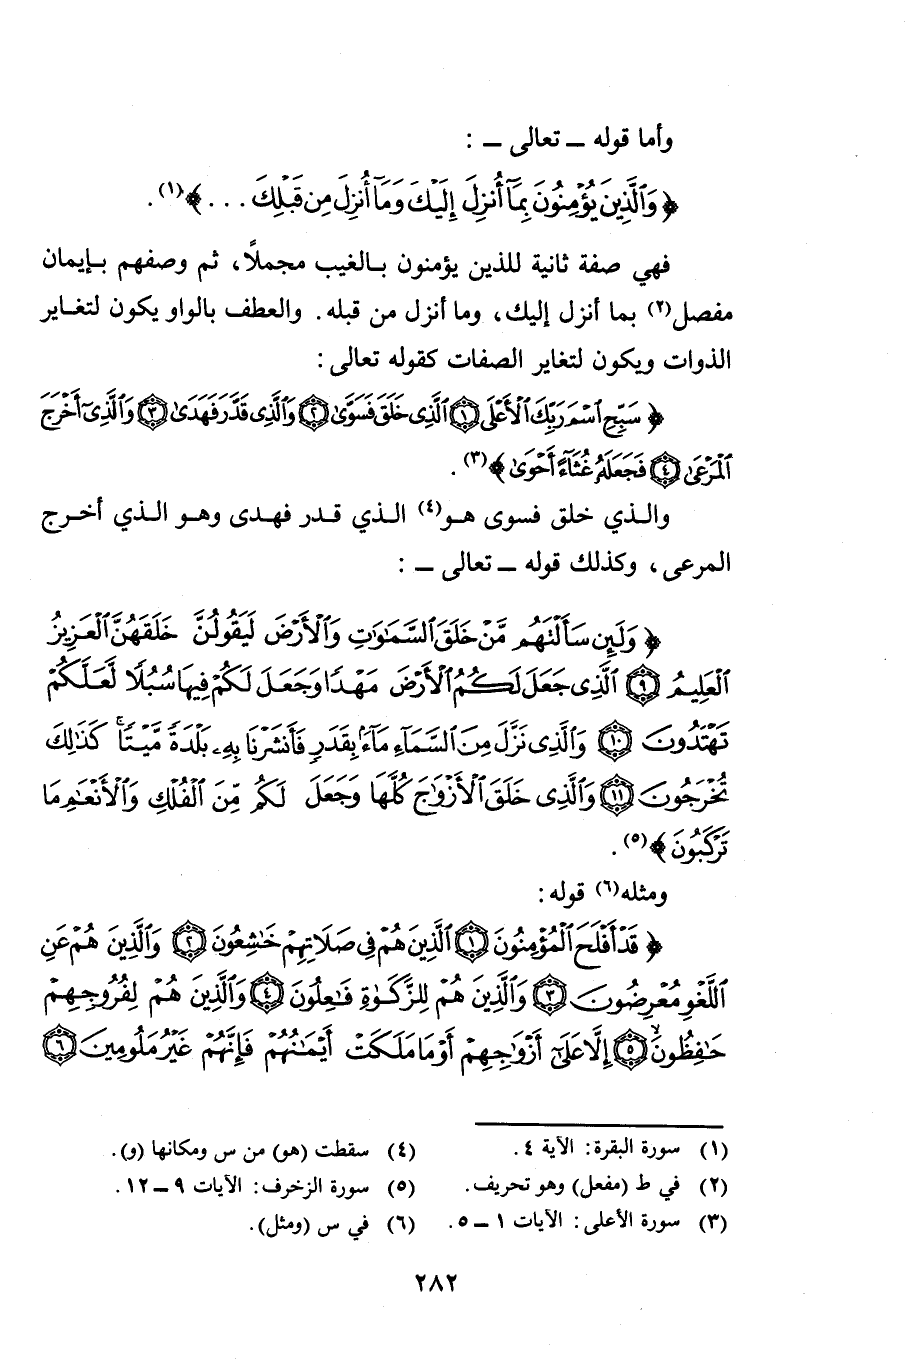 وأما قوله ــ تعالى ــ :
﴿ وَٱلَّذِينَ يُؤْمِنُونَ بِمَآ أُنزِلَ إِلَيْكَ وَمَآ أُنزِلَ مِن قَبْلِكَ . . . ﴾(١).
فهي صفة ثانية للذين يؤمنون بـالغيب مجملاً، ثم وصفهم بـإيمان
مفصل(٢) بما أنزل إليك، وما أنزل من قبله. والعطف بالواو يكون لتغـاير
الذوات ويكون لتغاير الصفات كقوله تعالى:
﴿ سَبِّحِ ٱسْمَ رَبِّكَ ٱلْأَعْلَى ١ ٱلَّذِى خَلَقَ فَسَوَّىٰ ٢ وَٱلَّذِى قَدَّرَ فَهَدَىٰ ٣ وَٱلَّذِىٓ أَخْرَجَ
ٱلْمَرْعَىٰ ٤ فَجَعَلَهُۥ غُثَآءً أَحْوَىٰ ﴾(٣) .
والـذي خلق فسوى هـو(٤) الـذي قـدر فهـدى وهـو الـذي أخـرج
المرعى، وكذلك قوله ــ تعالى ــ :
﴿ وَلَئِن سَأَلْتَهُم مَّنْ خَلَقَ ٱلسَّمَٰوَٰتِ وَٱلْأَرْضَ لَيَقُولُنَّ خَلَقَهُنَّ ٱلْعَزِيزُ
ٱلْعَلِيمُ ٩ ٱلَّذِى جَعَلَ لَكُمُ ٱلْأَرْضَ مَهْدًا وَجَعَلَ لَكُمْ فِيهَا سُبُلًا لَّعَلَّكُمْ
تَهْتَدُونَ ١٠ وَٱلَّذِى نَزَّلَ مِنَ ٱلسَّمَآءِ مَآءًۢ بِقَدَرٍ فَأَنشَرْنَا بِهِۦ بَلْدَةً مَّيْتًا ۚ كَذَٰلِكَ
تُخْرَجُونَ ١١ وَٱلَّذِى خَلَقَ ٱلْأَزْوَٰجَ كُلَّهَا وَجَعَلَ لَكُم مِّنَ ٱلْفُلْكِ وَٱلْأَنْعَٰمِ مَا
تَرْكَبُونَ ﴾(٥) .
ومثله(٦) قوله:
﴿ قَدْ أَفْلَحَ ٱلْمُؤْمِنُونَ ١ ٱلَّذِينَ هُمْ فِى صَلَاتِهِمْ خَٰشِعُونَ ٢ وَٱلَّذِينَ هُمْ عَنِ
ٱللَّغْوِ مُعْرِضُونَ ٣ وَٱلَّذِينَ هُمْ لِلزَّكَوٰةِ فَٰعِلُونَ ٤ وَٱلَّذِينَ هُمْ لِفُرُوجِهِمْ
حَٰفِظُونَ ۙ ٥ إِلَّا عَلَىٰٓ أَزْوَٰجِهِمْ أَوْ مَا مَلَكَتْ أَيْمَٰنُهُمْ فَإِنَّهُمْ غَيْرُ مَلُومِينَ ٦
(١) سورة البقرة: الآية ٤.
(٢) في ط (مفعل) وهو تحريف.
(٣) سورة الأعلى: الآيات ١ ــ ٥.
(٤) سقطت (هو) من س ومكانها (و).
(٥) سورة الزخرف: الآيات ٩ ــ ١٢.
(٦) في س (ومثل).
٢٨٢